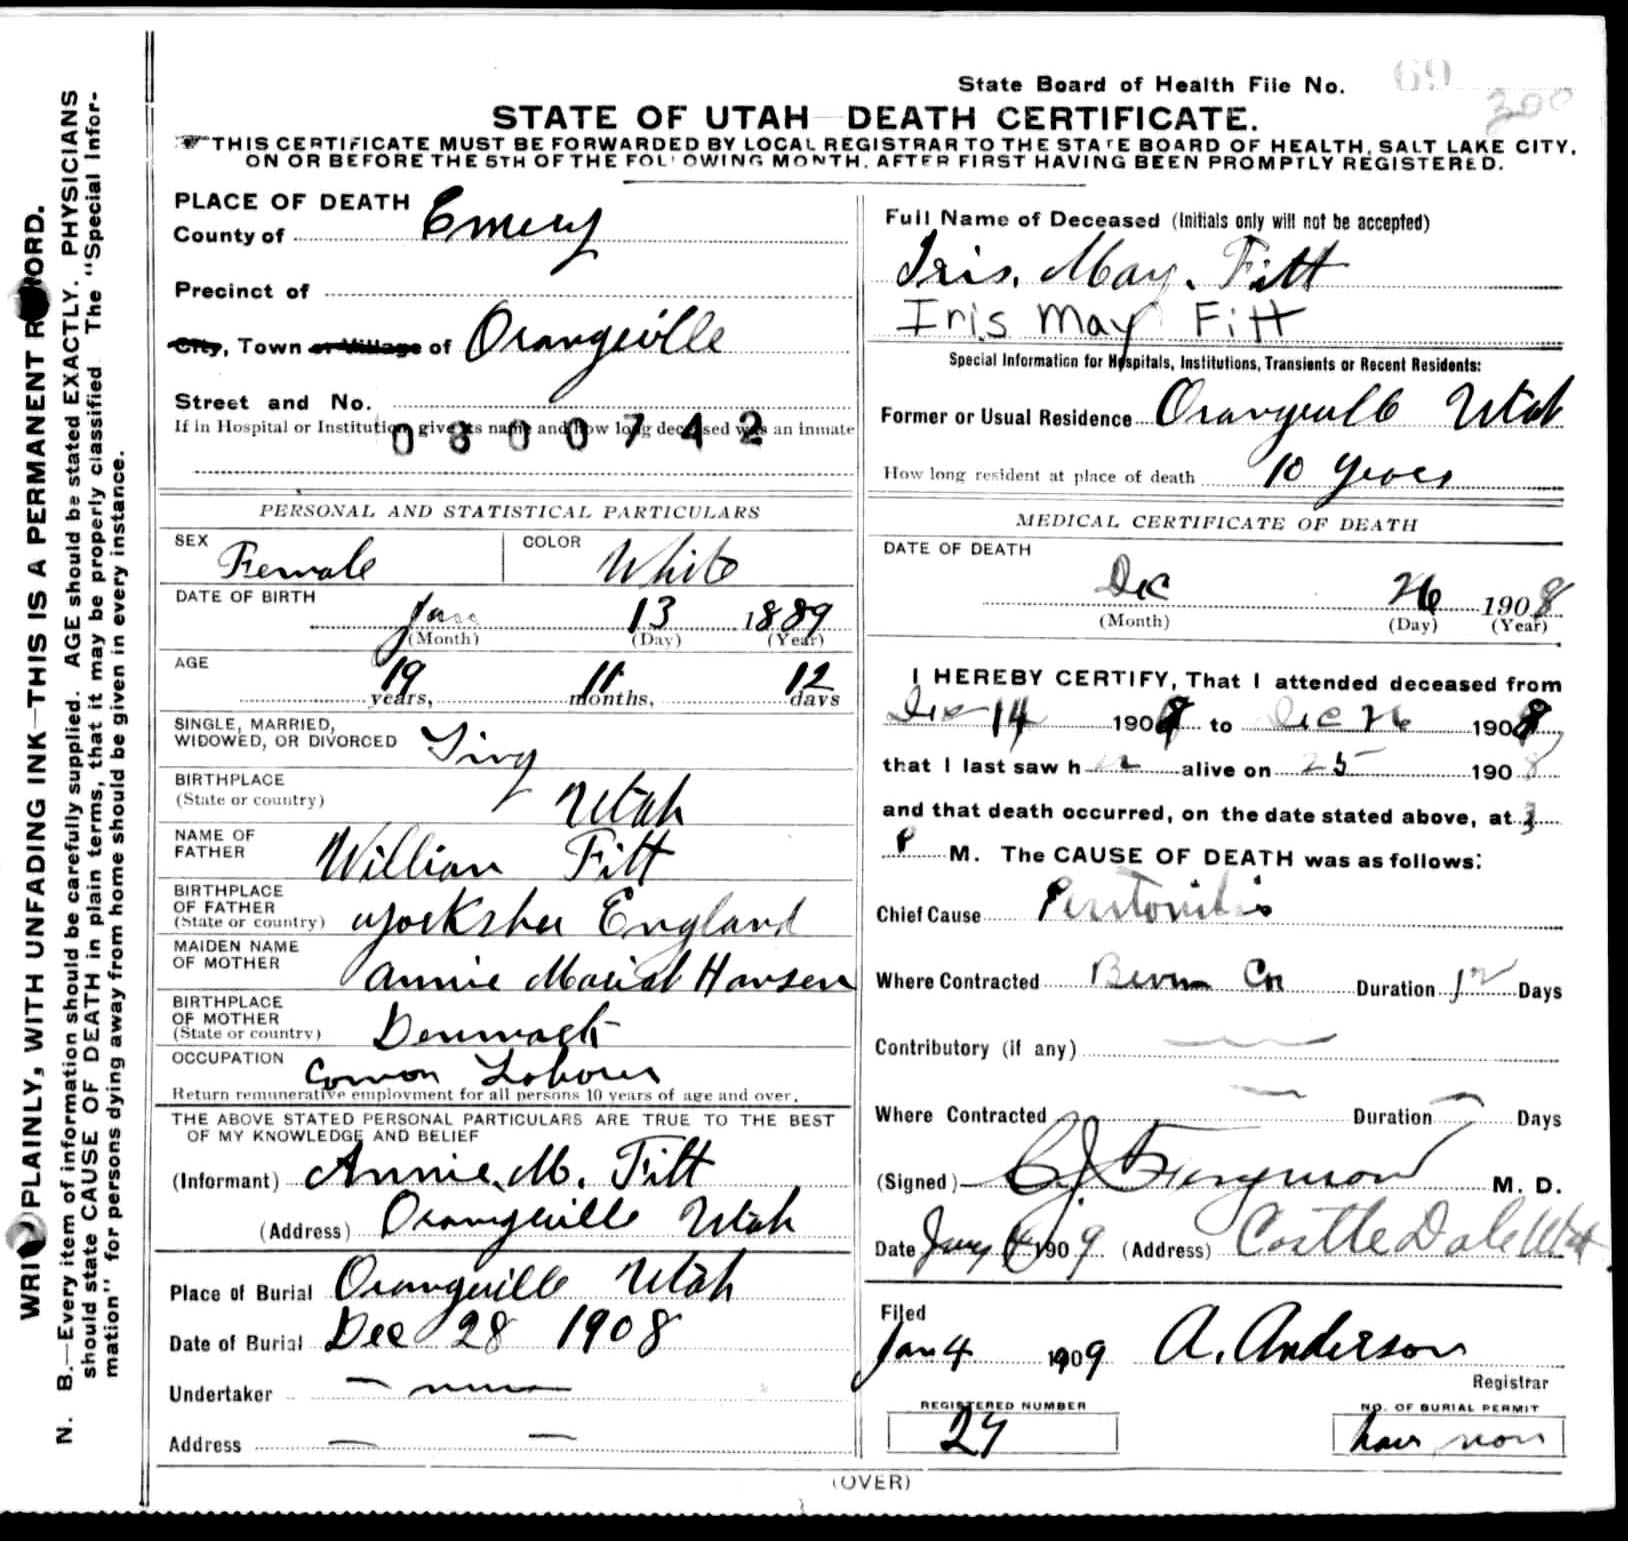 State Board of Health File No. 69
300
STATE OF UTAH DEATH CERTIFICATE.
THIS CERTIFICATE MUST BE FORWARDED BY LOCAL REGISTRAR TO THE STATE BOARD OF HEALTH, SALT LAKE CITY,
ON OR BEFORE THE 5TH OF THE FOLLOWING MONTH, AFTER FIRST HAVING BEEN PROMPTLY REGISTERED.
WRITE PLAINLY, WITH UNFADING INK—THIS IS A PERMANENT RECORD.
N. B.—Every item of information should be carefully supplied. AGE should be stated EXACTLY. PHYSICIANS
should state CAUSE OF DEATH in plain terms, that it may be properly classified. The "Special Infor-
mation" for persons dying away from home should be given in every instance.
PLACE OF DEATH
County of Emery
Precinct of
City, Town or Village of Orangeville
Street and No.
If in Hospital or Institution give its name and how long deceased was an inmate
0800742
PERSONAL AND STATISTICAL PARTICULARS
SEX Female COLOR White
DATE OF BIRTH
Jan 13 1889
(Month) (Day) (Year)
AGE
19 years, 11 months, 12 days
SINGLE, MARRIED,
WIDOWED, OR DIVORCED
BIRTHPLACE
(State or country) Utah
NAME OF
FATHER William Fitt
BIRTHPLACE
OF FATHER
(State or country) England
MAIDEN NAME
OF MOTHER Annie Hansen
BIRTHPLACE
OF MOTHER
(State or country) Denmark
OCCUPATION Comon Laborer
Return remunerative employment for all persons 10 years of age and over.
THE ABOVE STATED PERSONAL PARTICULARS ARE TRUE TO THE BEST
OF MY KNOWLEDGE AND BELIEF
(Informant) Annie M. Fitt
(Address) Orangeville Utah
Place of Burial Orangeville Utah
Date of Burial Dec 28 1908
Undertaker
Address
Full Name of Deceased (Initials only will not be accepted)
Iris. May. Fitt
Iris May Fitt
Special Information for Hospitals, Institutions, Transients or Recent Residents:
Former or Usual Residence Orangeville Utah
How long resident at place of death 10 years
MEDICAL CERTIFICATE OF DEATH
DATE OF DEATH
Dec 26 1908
(Month) (Day) (Year)
I HEREBY CERTIFY, That I attended deceased from
Dec 14 1908 to Dec 26 1908
that I last saw her alive on 25 1908
and that death occurred, on the date stated above, at 3
P M. The CAUSE OF DEATH was as follows:
Chief Cause Peritonitis
Where Contracted Duration 12 Days
Contributory (if any)
Where Contracted Duration Days
(Signed) Ferguson M. D.
Date Jany 4 1909 (Address) Castle Dale Utah
Filed
Jan 4 1909 A. Anderson
Registrar
REGISTERED NUMBER
NO. OF BURIAL PERMIT
(OVER)